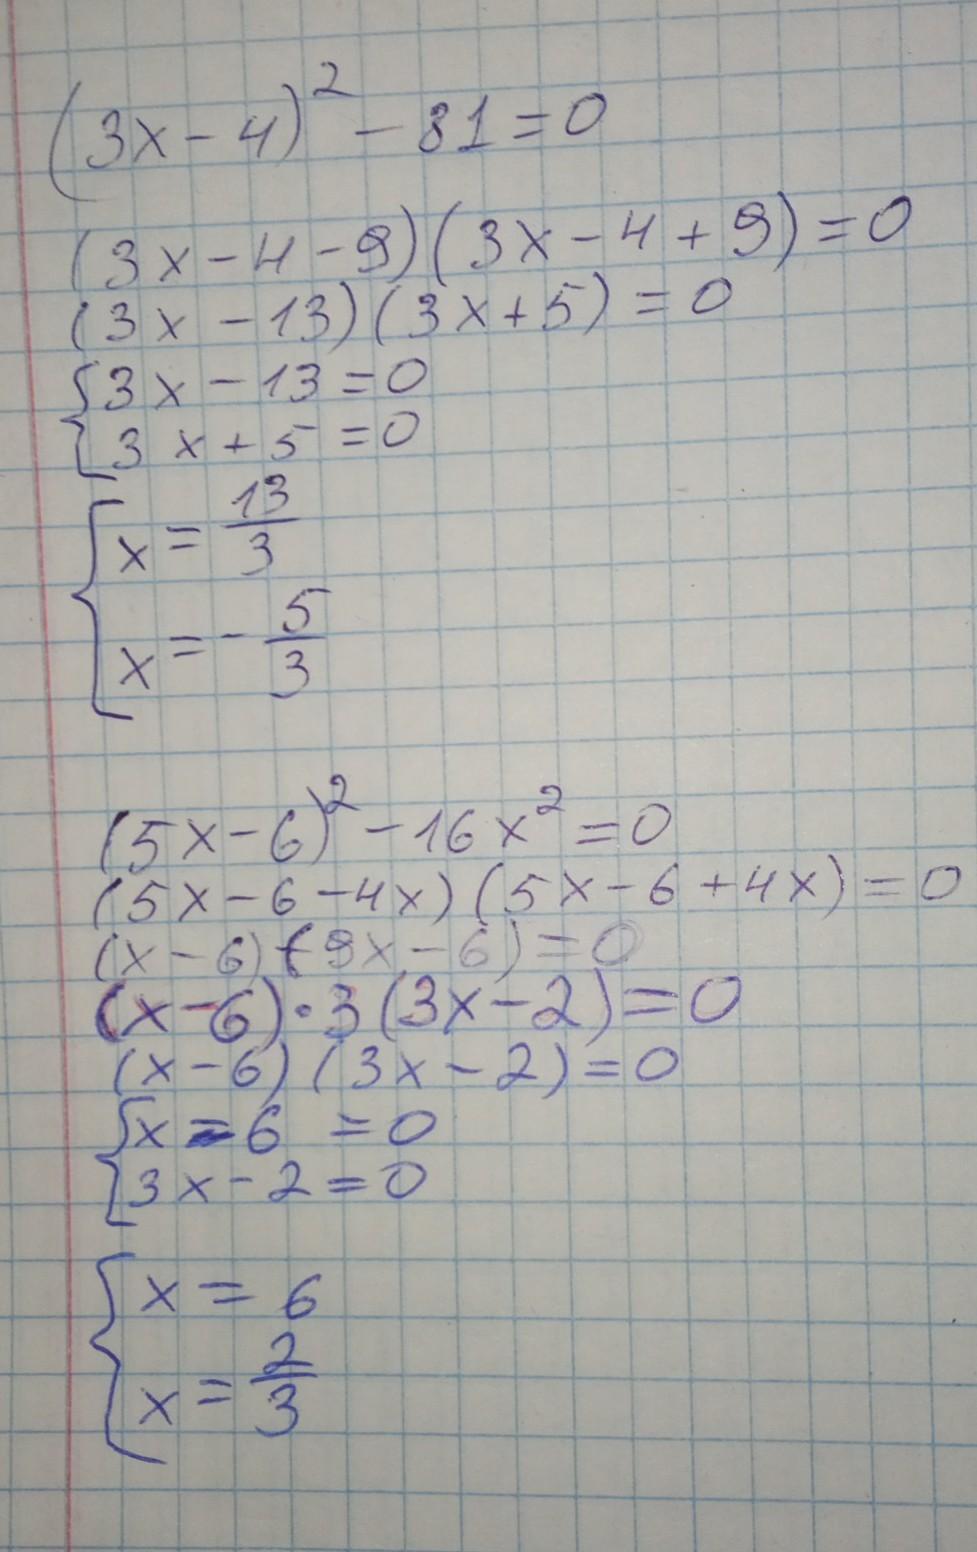 (3x-4)² - 81 = 0
(3x-4-9)(3x-4+9)=0
(3x-13)(3x+5)=0
{3x-13=0
3x+5=0
{x = 13/3
x = - 5/3
(5x-6)² - 16x² = 0
(5x-6-4x)(5x-6+4x)=0
(x-6)(9x-6)=0
(x-6)·3(3x-2)=0
(x-6)(3x-2)=0
{x-6=0
3x-2=0
{x = 6
x = 2/3